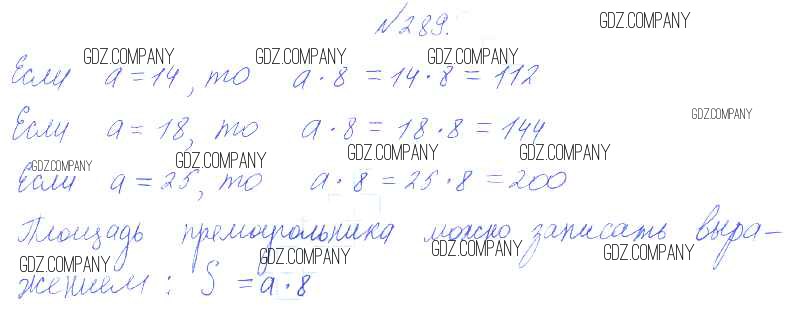 №289.
GDZ.COMPANY
GDZ.COMPANY GDZ.COMPANY GDZ.COMPANY GDZ.COMPANY
Если a = 14, то a · 8 = 14 · 8 = 112
GDZ.COMPANY
Если a = 18, то a · 8 = 18 · 8 = 144
GDZ.COMPANY GDZ.COMPANY GDZ.COMPANY GDZ.COMPANY
Если a = 25, то a · 8 = 25 · 8 = 200
Площадь премоугольника можно записать выра-
GDZ.COMPANY GDZ.COMPANY GDZ.COMPANY GDZ.COMPANY
жением: S = a · 8